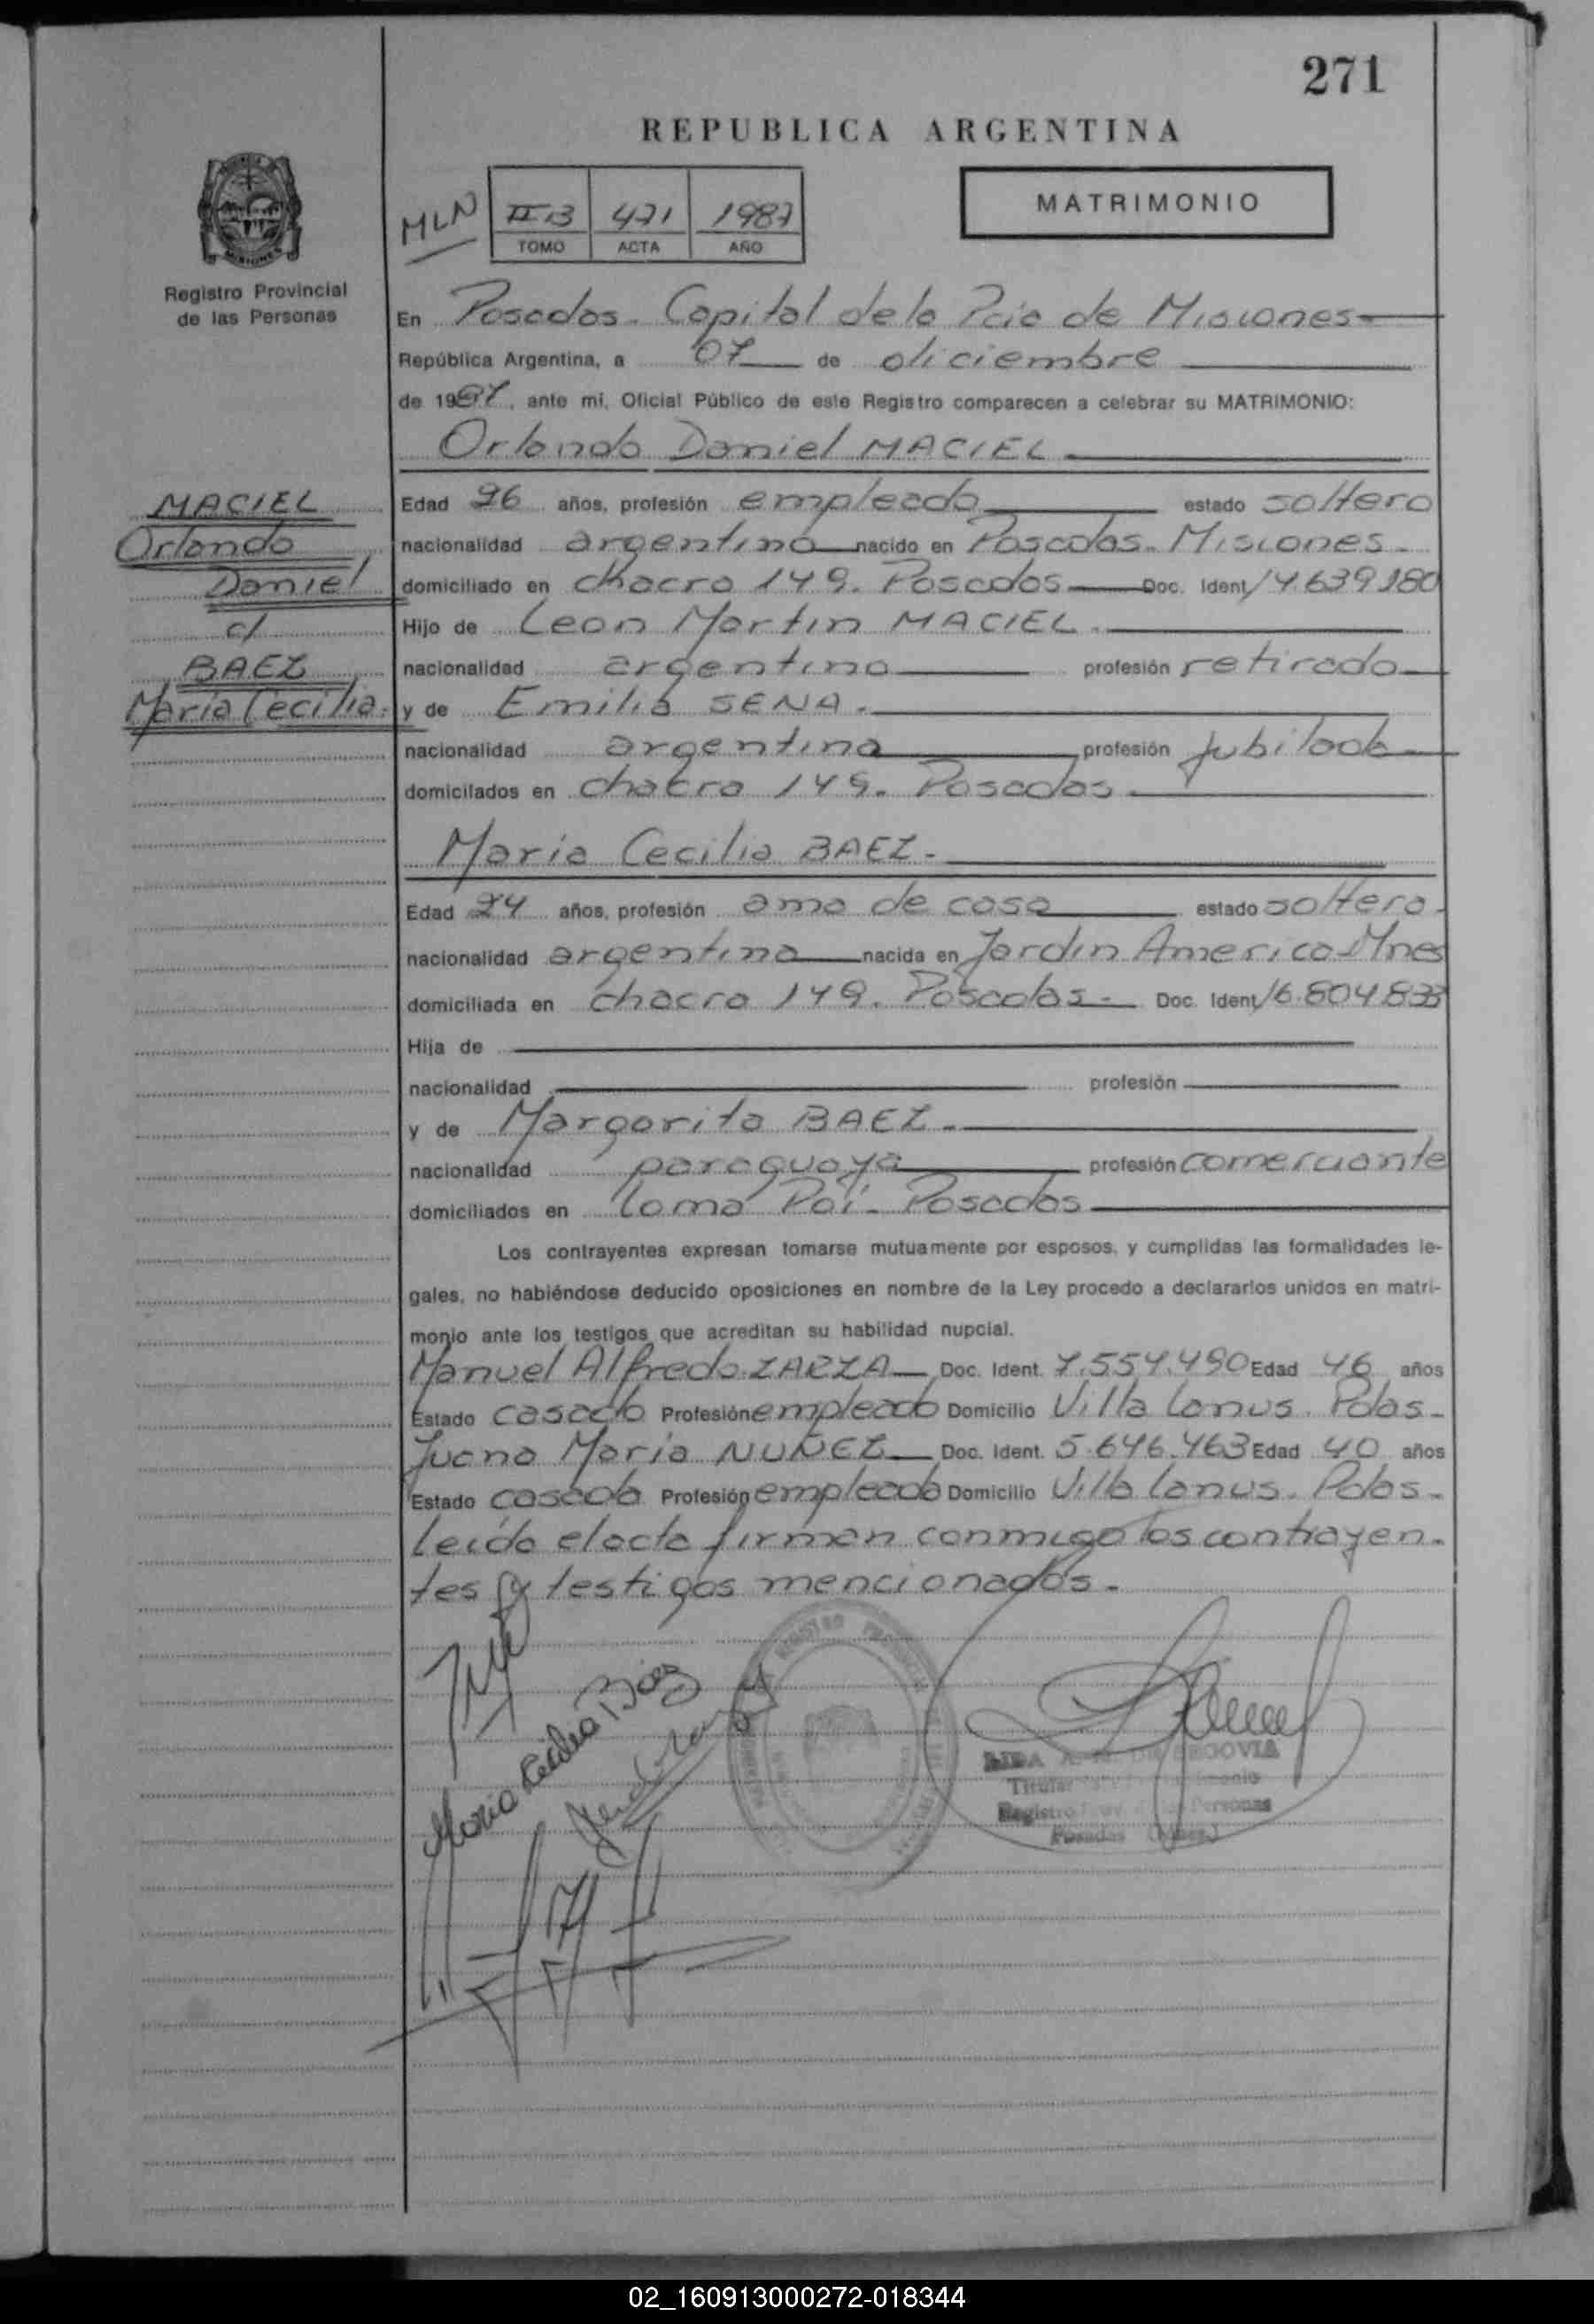 271
REPUBLICA ARGENTINA
MLN
II B 471 1987
TOMO ACTA AÑO
MATRIMONIO
Registro Provincial
de las Personas
En Posadas. Capital de la Pcia de Misiones
República Argentina, a 07 de diciembre
de 1987, ante mi, Oficial Público de este Registro comparecen a celebrar su MATRIMONIO:
Orlando Daniel MACIEL
MACIEL
Orlando
Daniel
c/
BAEZ
María Cecilia.
Edad 26 años, profesión empleado estado soltero
nacionalidad argentino nacido en Posadas. Misiones.
domiciliado en chacra 149. Posadas Doc. Ident 14.639.180
Hijo de Leon Martin MACIEL.
nacionalidad argentino profesión retirado
y de Emilia SENA.
nacionalidad argentina profesión jubilada
domicilados en chacra 149. Posadas
María Cecilia BAEZ.
Edad 24 años, profesión ama de casa estado soltera.
nacionalidad argentina nacida en Jardín America Mnes
domiciliada en chacra 149. Posadas. Doc. Ident 16.804.833
Hija de
nacionalidad profesión
y de Margarita BAEZ.
nacionalidad paraguaya profesión comerciante
domiciliados en Loma Poí. Posadas
Los contrayentes expresan tomarse mutuamente por esposos, y cumplidas las formalidades le-
gales, no habiéndose deducido oposiciones en nombre de la Ley procedo a declararlos unidos en matri-
monio ante los testigos que acreditan su habilidad nupcial.
Manuel Alfredo ZARZA Doc. Ident. 7.554.490 Edad 46 años
Estado casado Profesión empleado Domicilio Villa Lanus. Pdas.
Juana María NUÑEZ Doc. Ident. 5.646.463 Edad 40 años
Estado casada Profesión empleada Domicilio Villa Lanus. Pdas.
Leída el acta firman conmigo los contrayen-
tes y testigos mencionados.
María Cecilia Báez
DE SEGOVIA
Titular
Registro Personas
Posadas
02_160913000272-018344